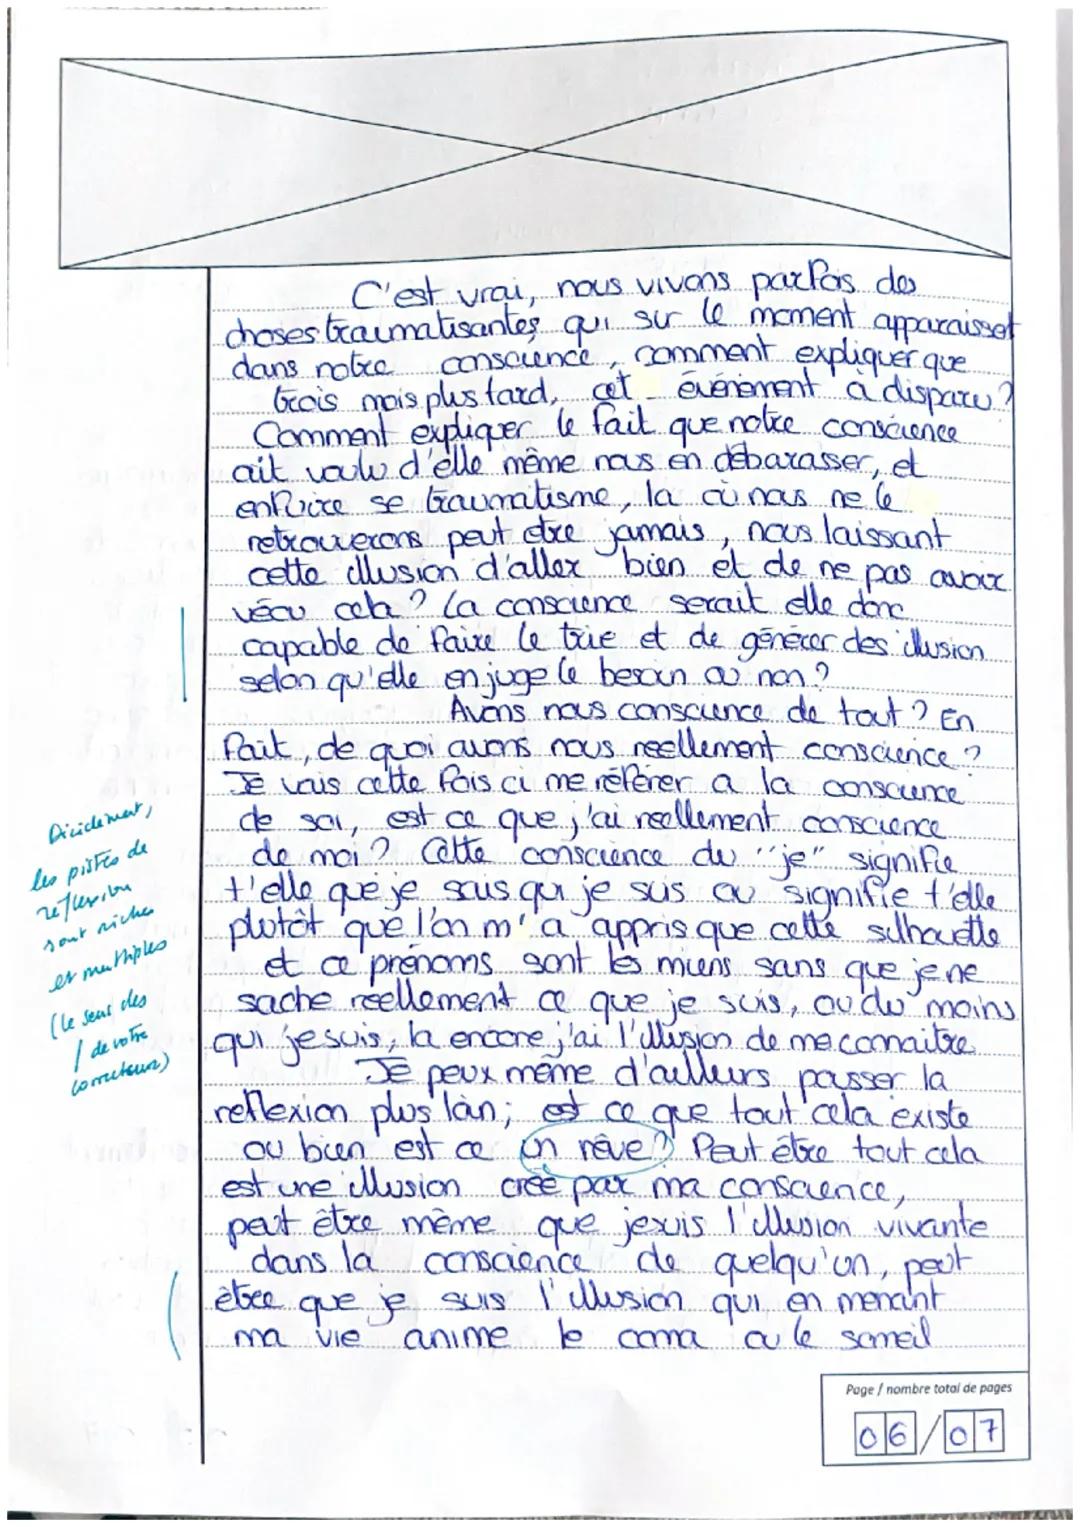 C'est vrai, nous vivons parfois des
choses traumatisantes qui sur le moment apparaisset
dans notre conscience, comment expliquer que
trois mois plus tard, cet événement à disparu ?
Comment expliquer le fait que notre conscience
ait voulu d'elle même nous en débarasser, et
enfuire se traumatisme, la où nous ne le
retrouverons peut etre jamais, nous laissant
cette illusion d'aller bien et de ne pas avoir
vécu cela ? La conscience serait elle donc
capable de faire le trie et de générer des illusion
selon qu'elle en juge le besoin ou non ?
Avons nous conscience de tout ? En
fait, de quoi avons nous reellement conscience ?
Je vais cette fois ci me référer a la conscience
de soi, est ce que j'ai reellement conscience
de moi ? Cette conscience du "je" signifie
t'elle que je sais qui je suis ou signifie t'elle
plutôt que l'on m'a appris que cette silhouette
et ce prénoms sont les miens sans que je ne
sache réellement ce que je suis, ou du moins
qui je suis, la encore j'ai l'illusion de me connaitre
Je peux même d'ailleurs pousser la
reflexion plus loin; est ce que tout cela existe
ou bien est ce un rêve ? Peut être tout cela
est une illusion creé par ma conscience,
peut être même que je suis l'illusion vivante
dans la conscience de quelqu'un, peut
être que je suis l'illusion qui en menant
ma vie anime le coma ou le someil
Décidément,
les pistes de
réflexion
sont riches
et multiples
(le sens des
/ de votre
correcteur)
Page / nombre total de pages
06/07